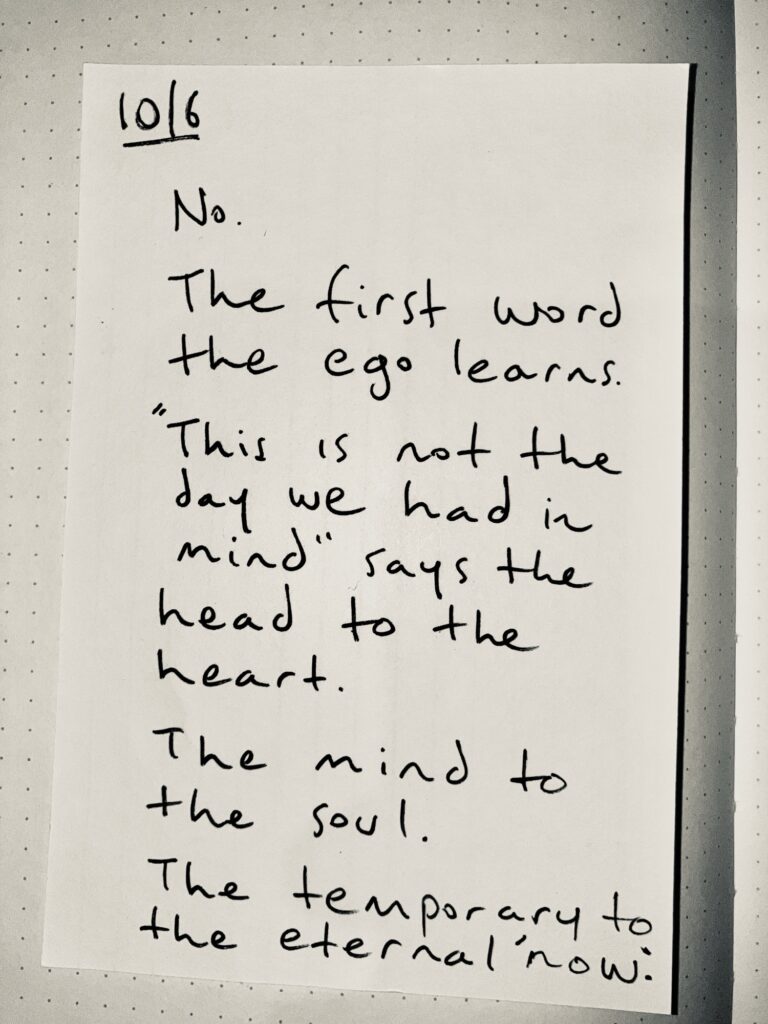 10/6
No.
The first word
the ego learns.
"This is not the
day we had in
mind" says the
head to the
heart.
The mind to
the soul.
The temporary to
the eternal 'now'.